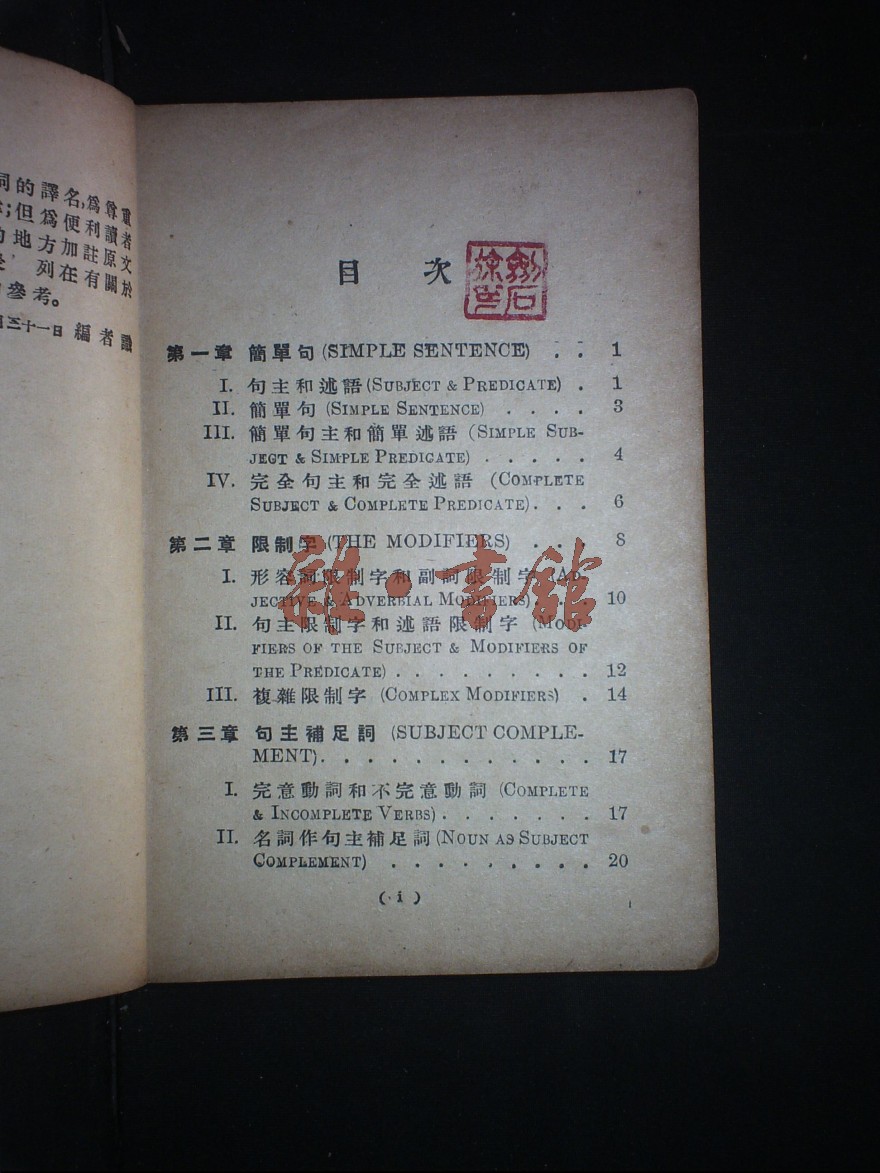 詞的譯名,爲尊重
;但爲便利讀者
的地方加註原文
列在有關於
參考。
三十一日 編者識
目 次
劍石
徐
第一章 簡單句 (SIMPLE SENTENCE) . . 1
I. 句主和述語 (SUBJECT & PREDICATE) . 1
II. 簡單句 (SIMPLE SENTENCE) . . . . 3
III. 簡單句主和簡單述語 (SIMPLE SUB-
JECT & SIMPLE PREDICATE) . . . . . 4
IV. 完全句主和完全述語 (COMPLETE
SUBJECT & COMPLETE PREDICATE) . . . 6
第二章 限制字 (THE MODIFIERS) . . . 8
I. 形容詞限制字和副詞限制字 (AD-
JECTIVE & ADVERBIAL MODIFIERS) . . 10
II. 句主限制字和述語限制字 (MODI-
FIERS OF THE SUBJECT & MODIFIERS OF
THE PREDICATE) . . . . . . . . . 12
III. 複雜限制字 (COMPLEX MODIFIERS) . 14
第三章 句主補足詞 (SUBJECT COMPLE-
MENT) . . . . . . . . . . . . 17
I. 完意動詞和不完意動詞 (COMPLETE
& INCOMPLETE VERBS) . . . . . . . 17
II. 名詞作句主補足詞 (NOUN AS SUBJECT
COMPLEMENT) . . . . . . . . . 20
( i )
雜·書館